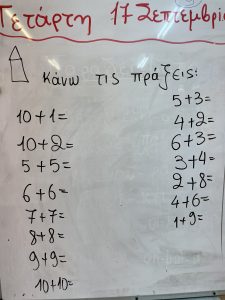 Τετάρτη 17 Σεπτεμβρίο
κάνω τις πράξεις:
10+1=
10+2=
5+5=
6+6=
7+7=
8+8=
9+9=
10+10=
5+3=
4+2=
6+3=
3+4=
2+8=
4+6=
1+9=